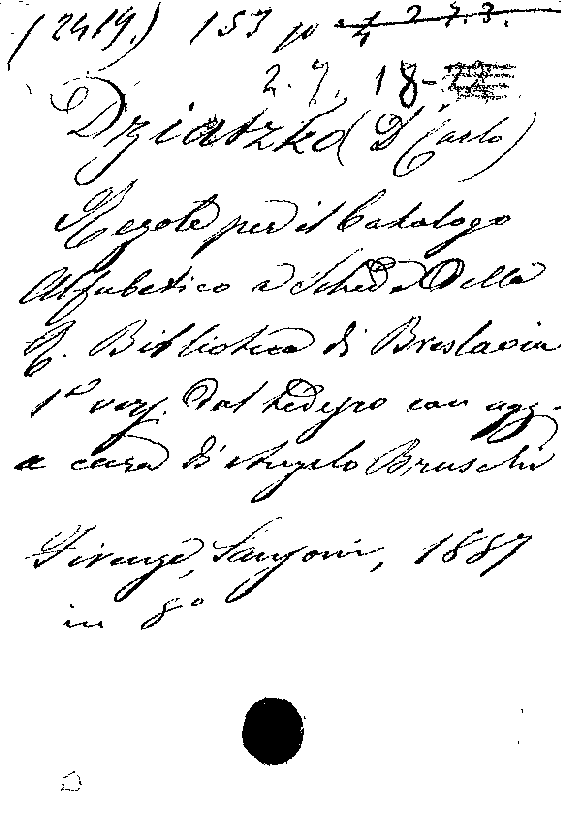 (2419.) 153
2. 7. 18-
Dziatzko (Dr Carlo)
Regole per il Catalogo
Alfabetico a Schede della
R. Biblioteca di Breslavia
1ª vers. dal tedesco con agg.
a cura di Angelo Bruschi
Firenze, Sansoni, 1887
in 8º